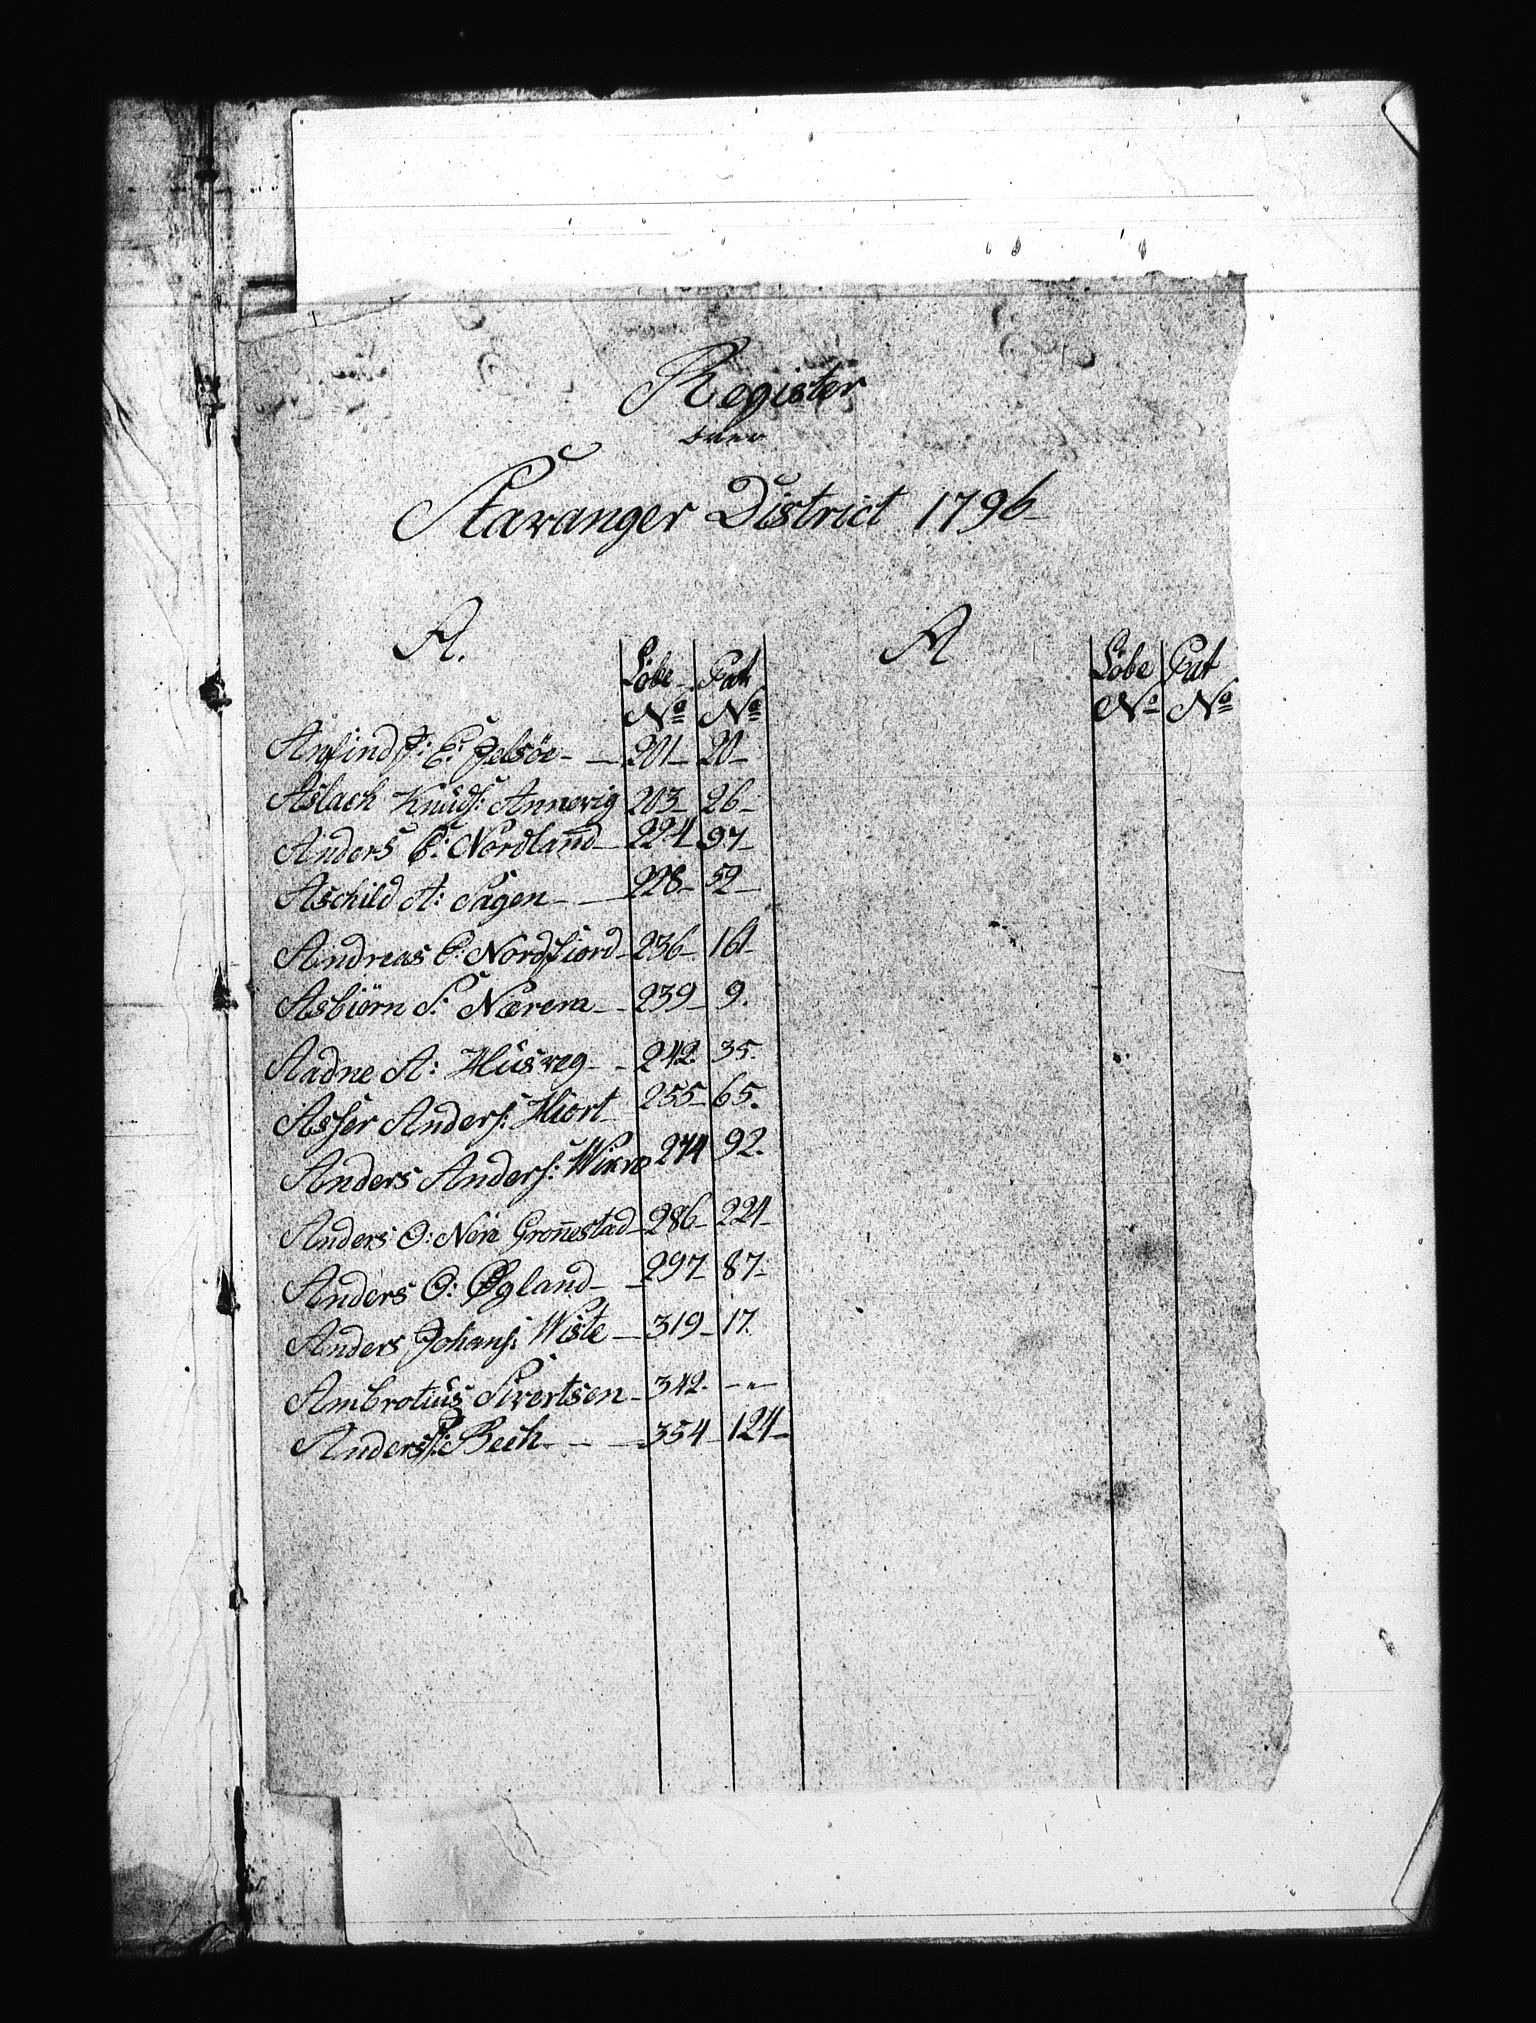 Register
over
Stavanger District 1796
A.
Löbe Pat
No No
A
Löbe Pat
No No
Arfind E: Jelsöe 201 20
Aslach Knuds: Annevig 203 26
Anders E: Nordland 224 97
Aschild A: Sagen 228 52
Andreas E: Nordfiord 236 161
Asbiørn S: Nærem 239 9.
Aadne A: Husveg 242. 35.
Asser Anders: Hiort 255 65.
Anders Anders: Wikre 274 92.
Anders O: Nere Gronnestad 286 224
Anders O: Øgland 297 87
Anders Johans: Wiste 319 17.
Ambrotius Sivertsen 342. - " -
Anders: Bech 354 124